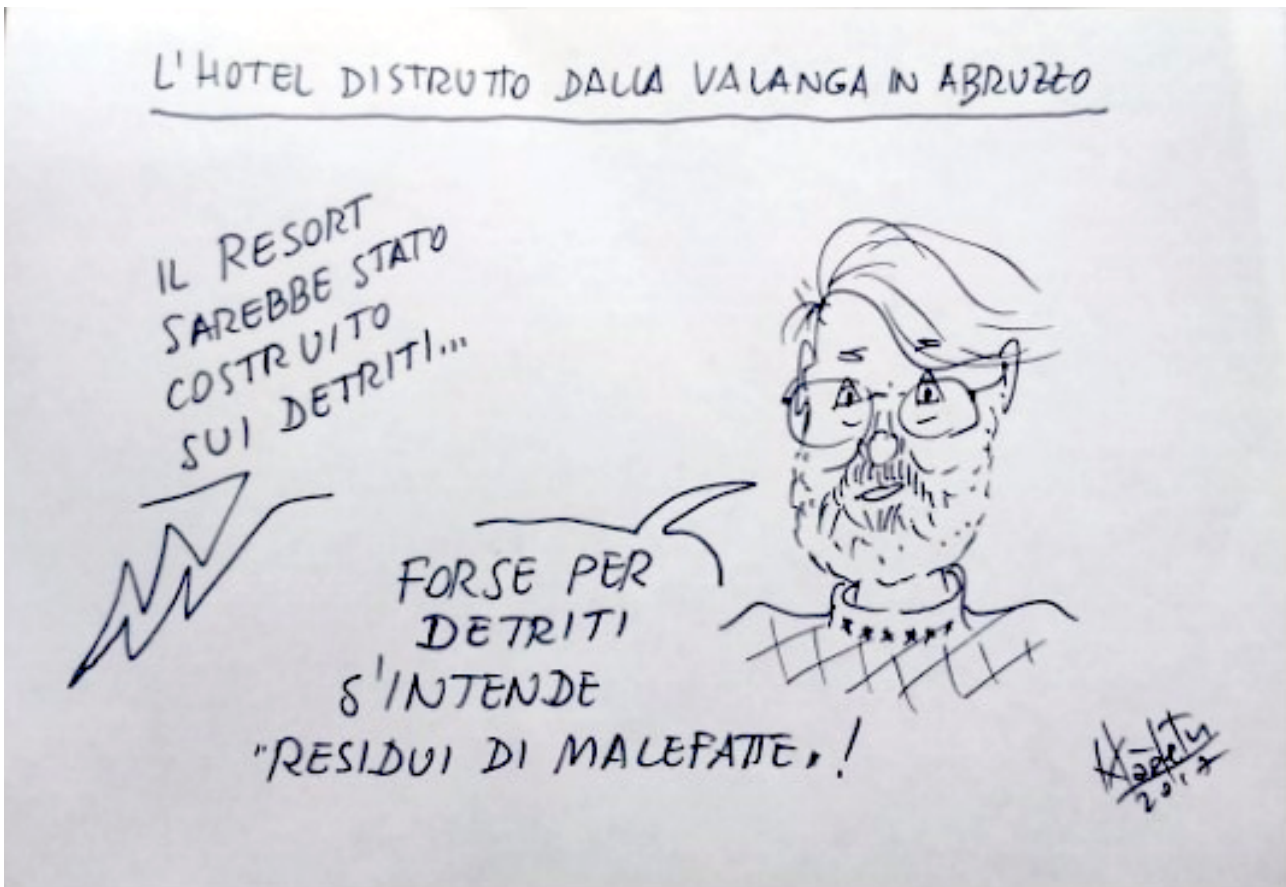 L'HOTEL DISTRUTTO DALLA VALANGA IN ABRUZZO
IL RESORT
SAREBBE STATO
COSTRUITO
SUI DETRITI...
FORSE PER
DETRITI
S'INTENDE
"RESIDUI DI MALEFATTE"!
2017